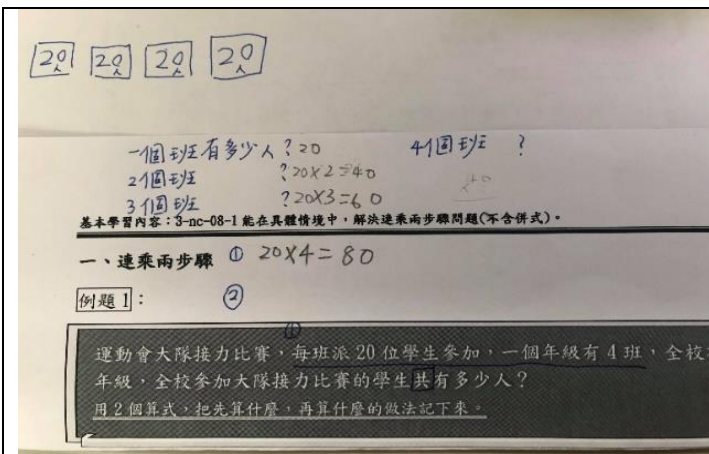 20人 20人 20人 20人
一個班有多少人?20 4個班 ?
2個班 ?20×2=40
3個班 ?20×3=60
基本學習內容:3-nc-08-1 能在具體情境中,解決連乘兩步驟問題(不含併式)。
一、連乘兩步驟 ① 20×4=80
例題1: ②
①
運動會大隊接力比賽,每班派 20 位學生參加,一個年級有 4 班,全校
年級,全校參加大隊接力比賽的學生共有多少人?
用 2 個算式,把先算什麼,再算什麼的做法記下來。